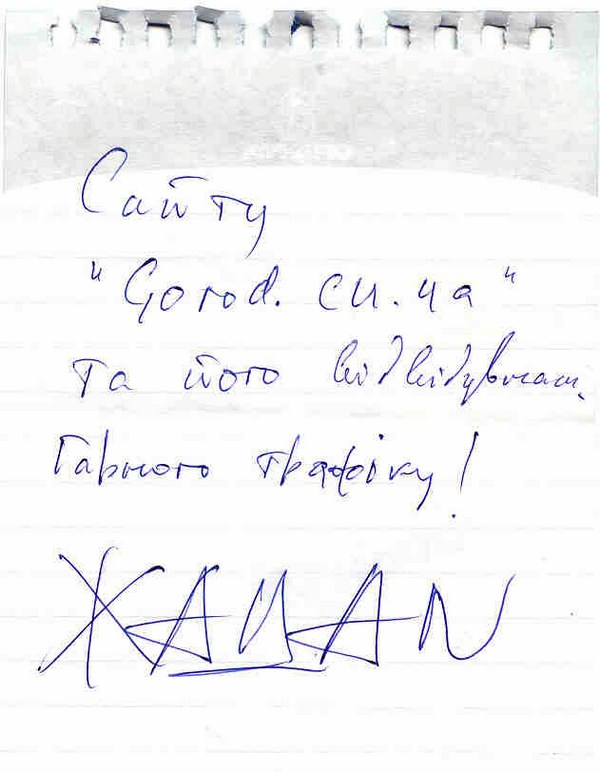 Сайту
"Gorod.cn.ua"
та його відвідувачам
гарного трафіку!
ЖАДАН